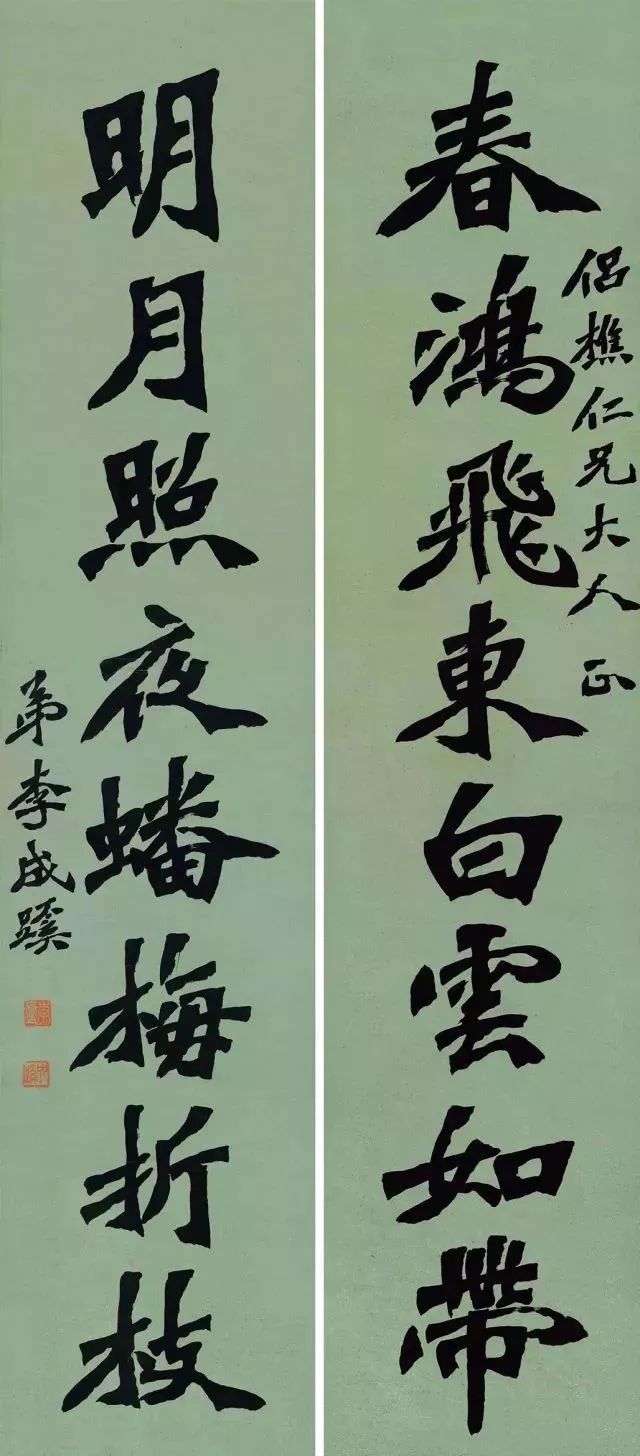 春鴻飛東白雲如帶
侣樵仁兄大人 正
明月照夜蟠梅折枝
弟李成蹊